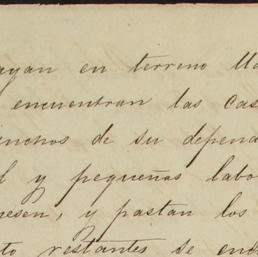 ayan en terreno lla
encuentran las cas
nchos de su depend
l y pequeñas labo
resen, y pastan los
to restantes se enc